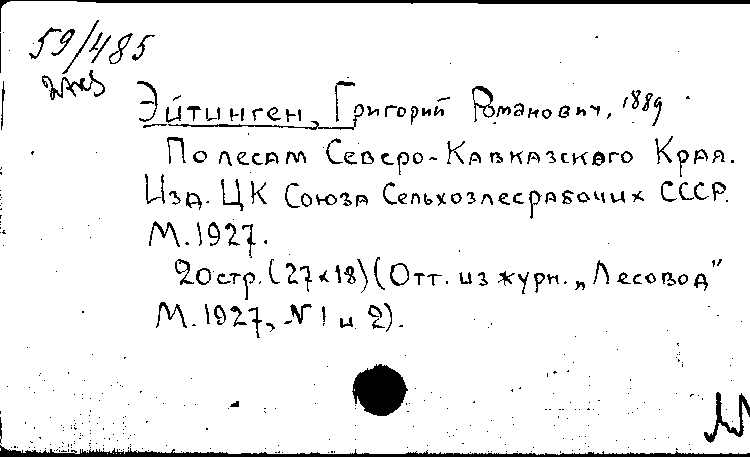 59/485
2 экз
Эйтинген, Григорий Романович, 1889
По лесам Северо-Кавказского Края.
Изд. ЦК Союза Сельхозлесрабочих СССР.
М. 1927.
20 стр. (27×18) (Отт. из журн. „Лесовод"
М. 1927, № 1 и 2).